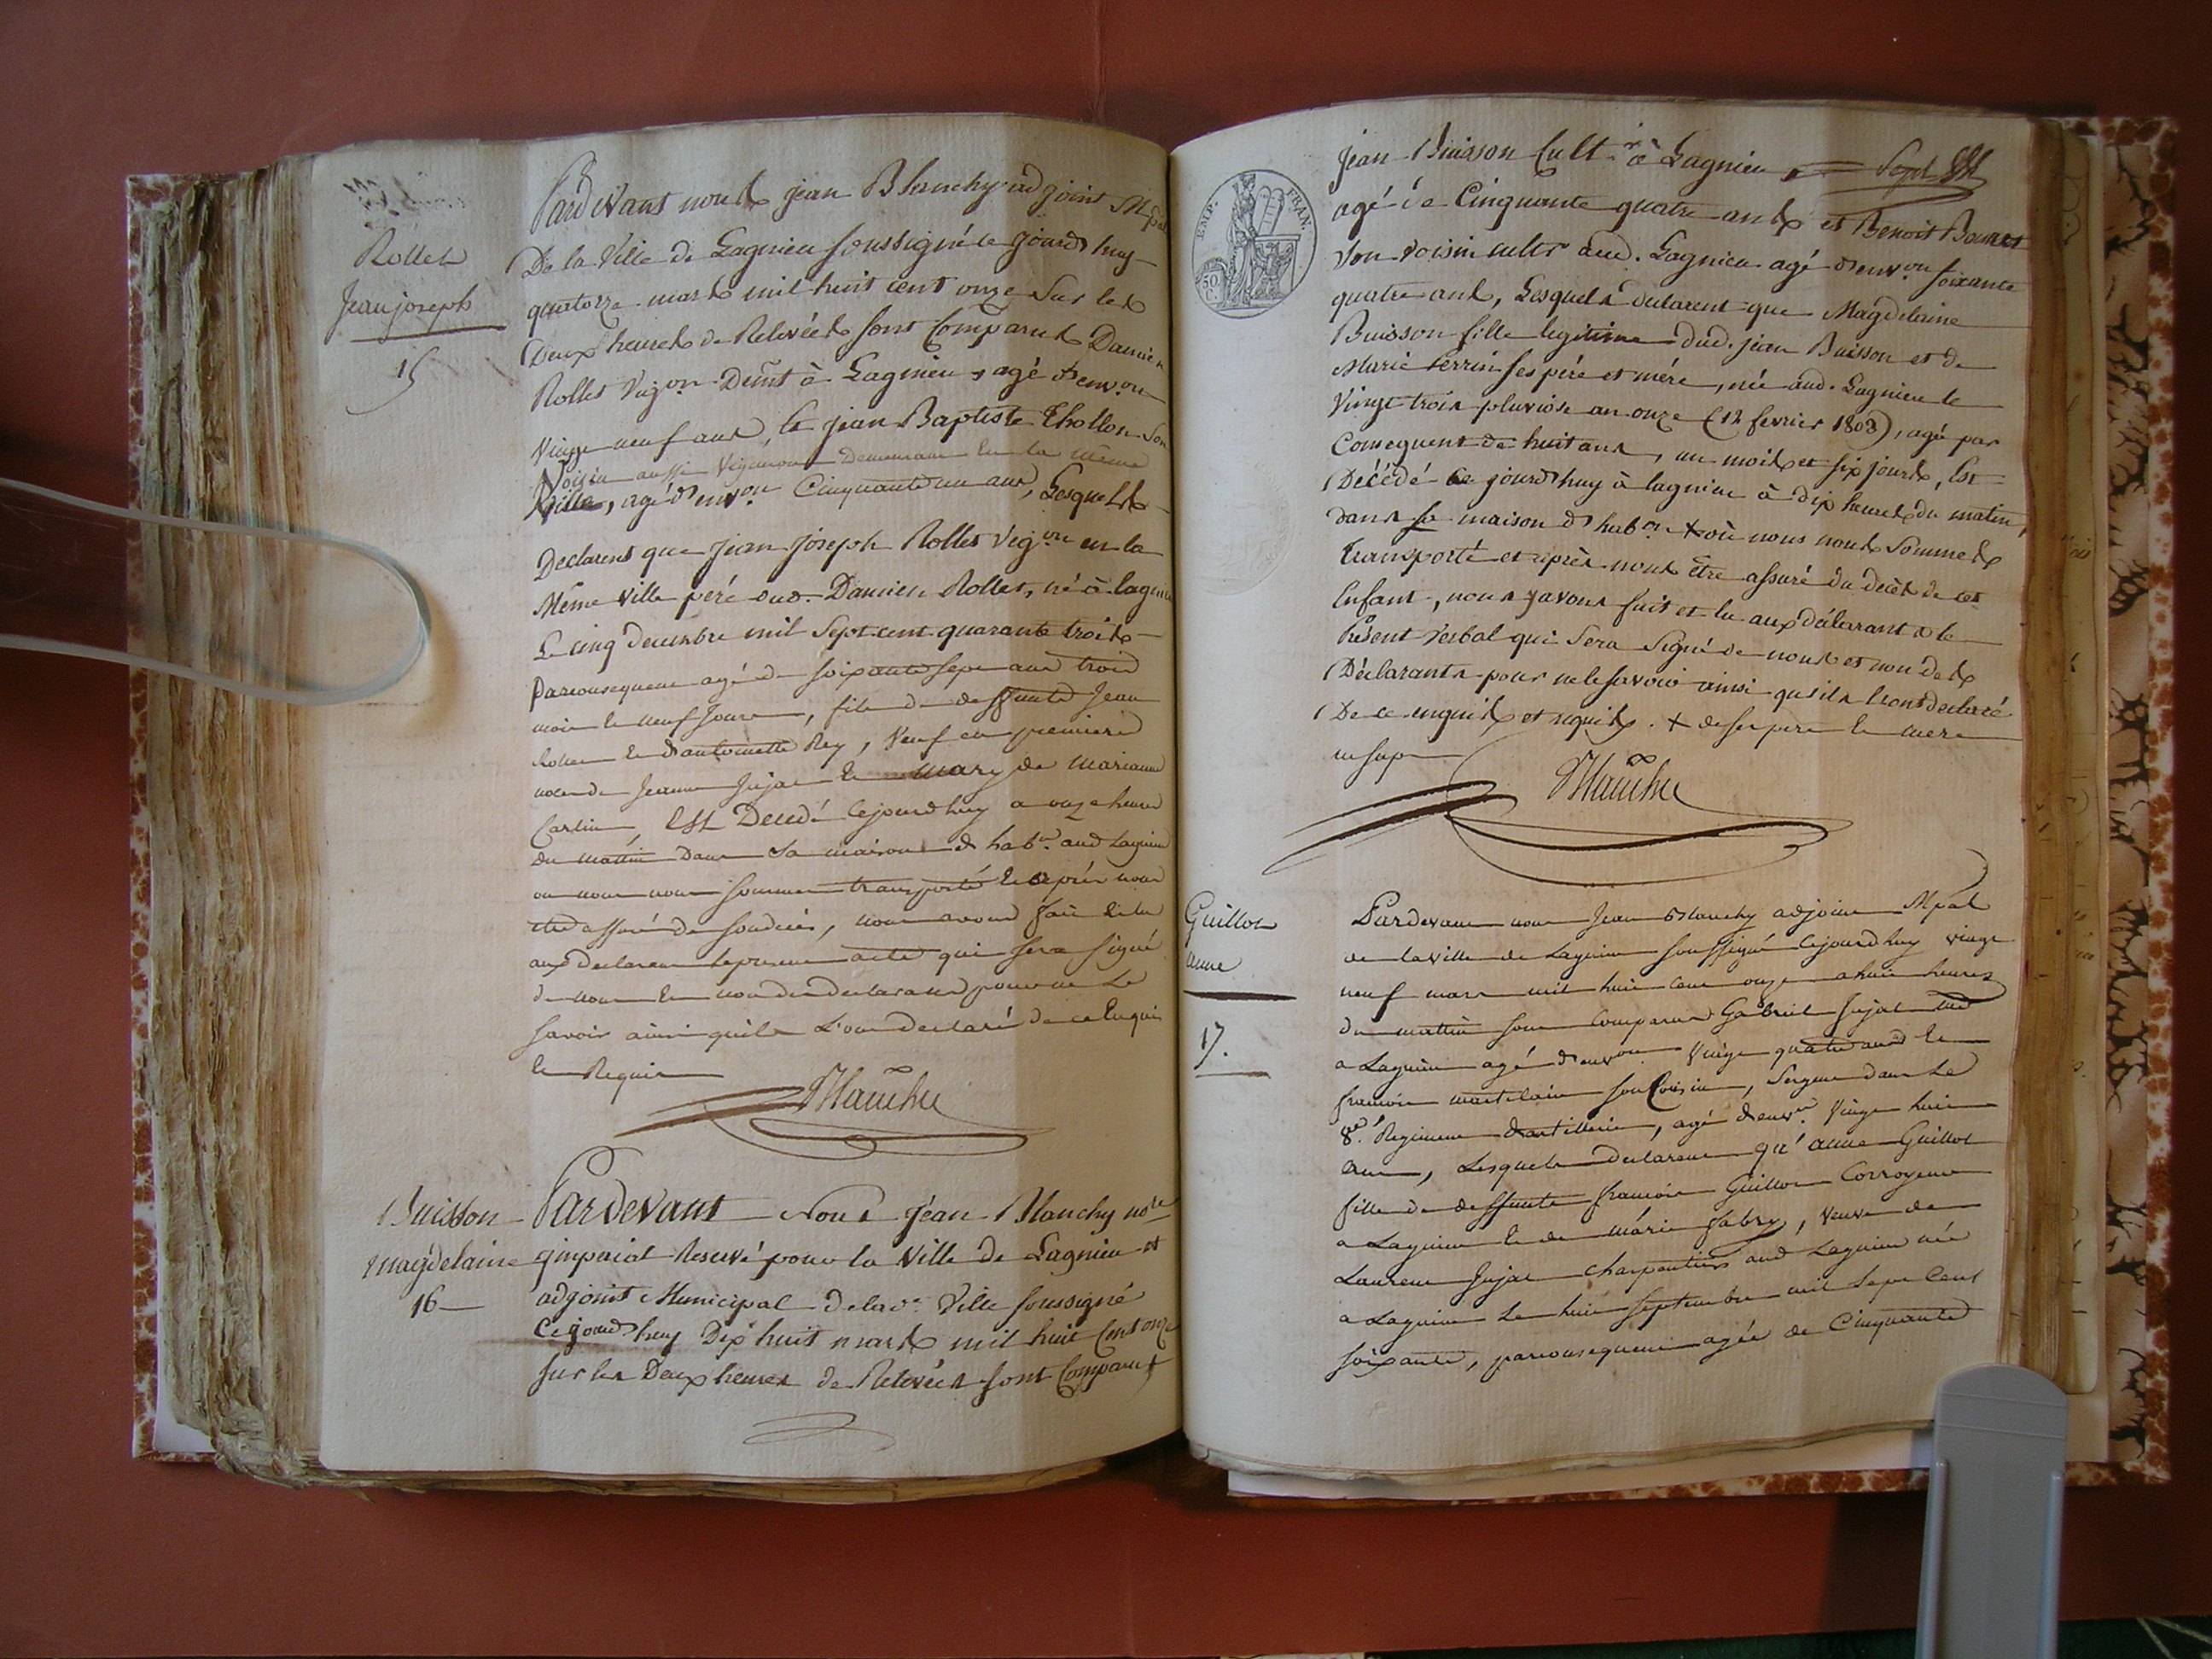 Rollet
Jean joseph
15
Pardevant nous jean Blanchy adjoint Mpal
De la Ville de Lagnieu soussigné ce jourd'huy
quatorze mars mil huit cent onze sur les
Deux heures de Relevées sont Comparus Damien
Rollet Vigon Demt à Lagnieu, agé d'envon
Vingt neuf ans, et jean Baptiste Thollon son
Voisin aussi Vigneron Demeurant en la même
Ville, agé d'envon Cinquante un ans, Lesquels
Declarent que Jean Joseph Rollet Vigon en la
Même Ville père dud. Damien Rollet, né à lagnieu
Le cinq decembre mil sept cent quarante trois
parconsequent agé de soixante sept ans trois
mois et neuf jours, fils de deffunts Jean
Rollet et d'antoinette Rey, Veuf en premiere
noce de Jeanne Jujat et mary de Marianne
Carlin, Est Decedé cejourd'huy a onze heures
Du mattin Dans Sa maison d'habon aud Lagnieu
ou nous nous sommes transporté et après nous
etre assuré de son decès, nous avons fait et lu
aux declarans le present acte qui sera signé
de nous et non des declarans pour ne Le
savoir ainsi quils L'ont declaré de ce Enquis
et Requis
Blanchy
Buisson
magdelaine
16
Pardevant Nous Jean Blanchy nore
jmperial Reservé pour la Ville de Lagnieu et
adjoint Municipal de lad. Ville soussigné
Cejourd'huy Dix huit mars mil huit Cent onze
sur les Deux heures de Relevées sont Comparus
EMP. FRAN.
50 C.
Jean Buisson Cultr à Lagnieu
agé de Cinquante quatre ans et Benoit
son voisin cultr aud. Lagnieu agé d'envon soixante
quatre ans, Lesquels declarent que Magdelaine
Buisson fille legitime dud. jean Buisson et de
Marie Perrin ses père et mère, née aud. Lagnieu le
Vingt trois pluviose an onze (12 fevrier 1803), agée par
Consequent de huit ans, un mois et six jours, Est
Décédé ce jourd'huy à lagnieu à dix heures du matin,
dans sa maison d'habon + où nous nous sommes
transporté et après nous Etre assuré du decès de cet
Enfant, nous y avons fait et lu aux déclarants le
Présent Verbal qui Sera Signé de nous et non des
Déclarants pour ne le savoir ainsi qu'ils l'ont déclaré
De ce enquis et requis. + de ses pere et mere
Blanchy
Guillot
anne
17.
Pardevant nous Jean Blanchy adjoint Mpal
de la ville de Lagnieu soussigné cejourd'huy vingt
neuf mars mil huit cent onze a huit heures
du mattin sont comparus Gabriel Jujat
a Lagnieu agé d'envon Vingt quatre ans et
francois martelain son Cousin, Sergent dans Le
8e. Regiment d'artillerie, agé d'envon Vingt huit
ans, Lesquels declarent qu'anne Guillot
fille de deffunts francois Guillot Corroyeur
a Lagnieu et de marie fabry, Veuve de
Laurent Jujat charpentier aud Lagnieu née
a Lagnieu Le huit septembre mil sept Cent
soixante, parconsequent agée de Cinquante